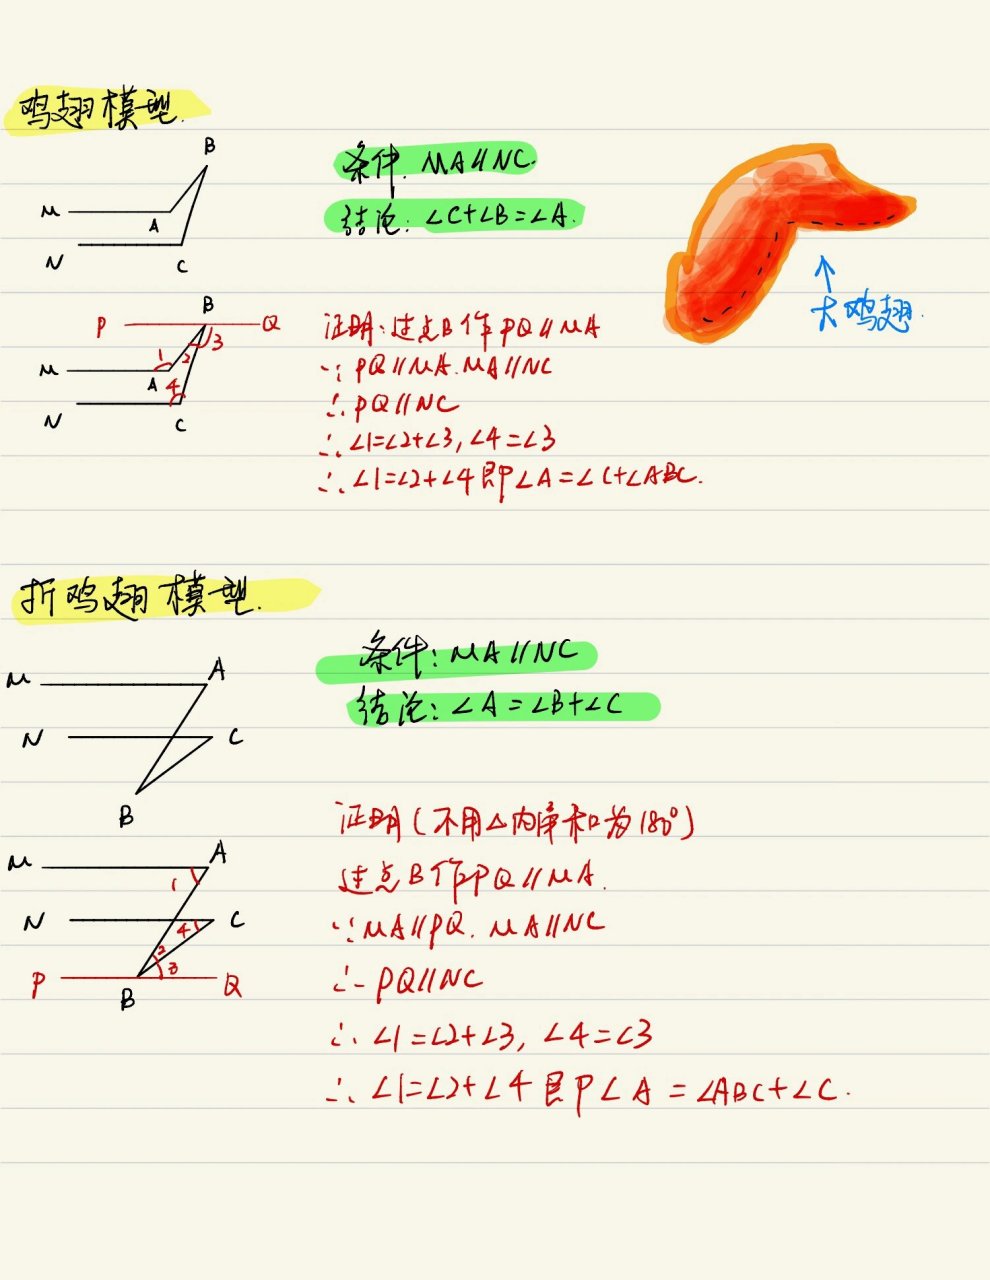 鸡翅模型.
B
条件. MA∥NC.
M
A
结论: ∠C+∠B=∠A.
N
C
大鸡翅.
B
P
Q
证明:过点B作PQ∥MA
3
1
2
∵PQ∥MA.MA∥NC
M
A
4
∴PQ∥NC
N
C
∴∠1=∠2+∠3,∠4=∠3
∴∠1=∠2+∠4即∠A=∠C+∠ABC.
折鸡翅模型.
条件:MA∥NC
M
A
结论:∠A=∠B+∠C
N
C
B
证明(不用△内角和为180°)
M
A
1
过点B作PQ∥MA.
N
C
4
∵MA∥PQ. MA∥NC
2
3
P
Q
B
∴PQ∥NC
∴∠1=∠2+∠3, ∠4=∠3
∴∠1=∠2+∠4即∠A=∠ABC+∠C.